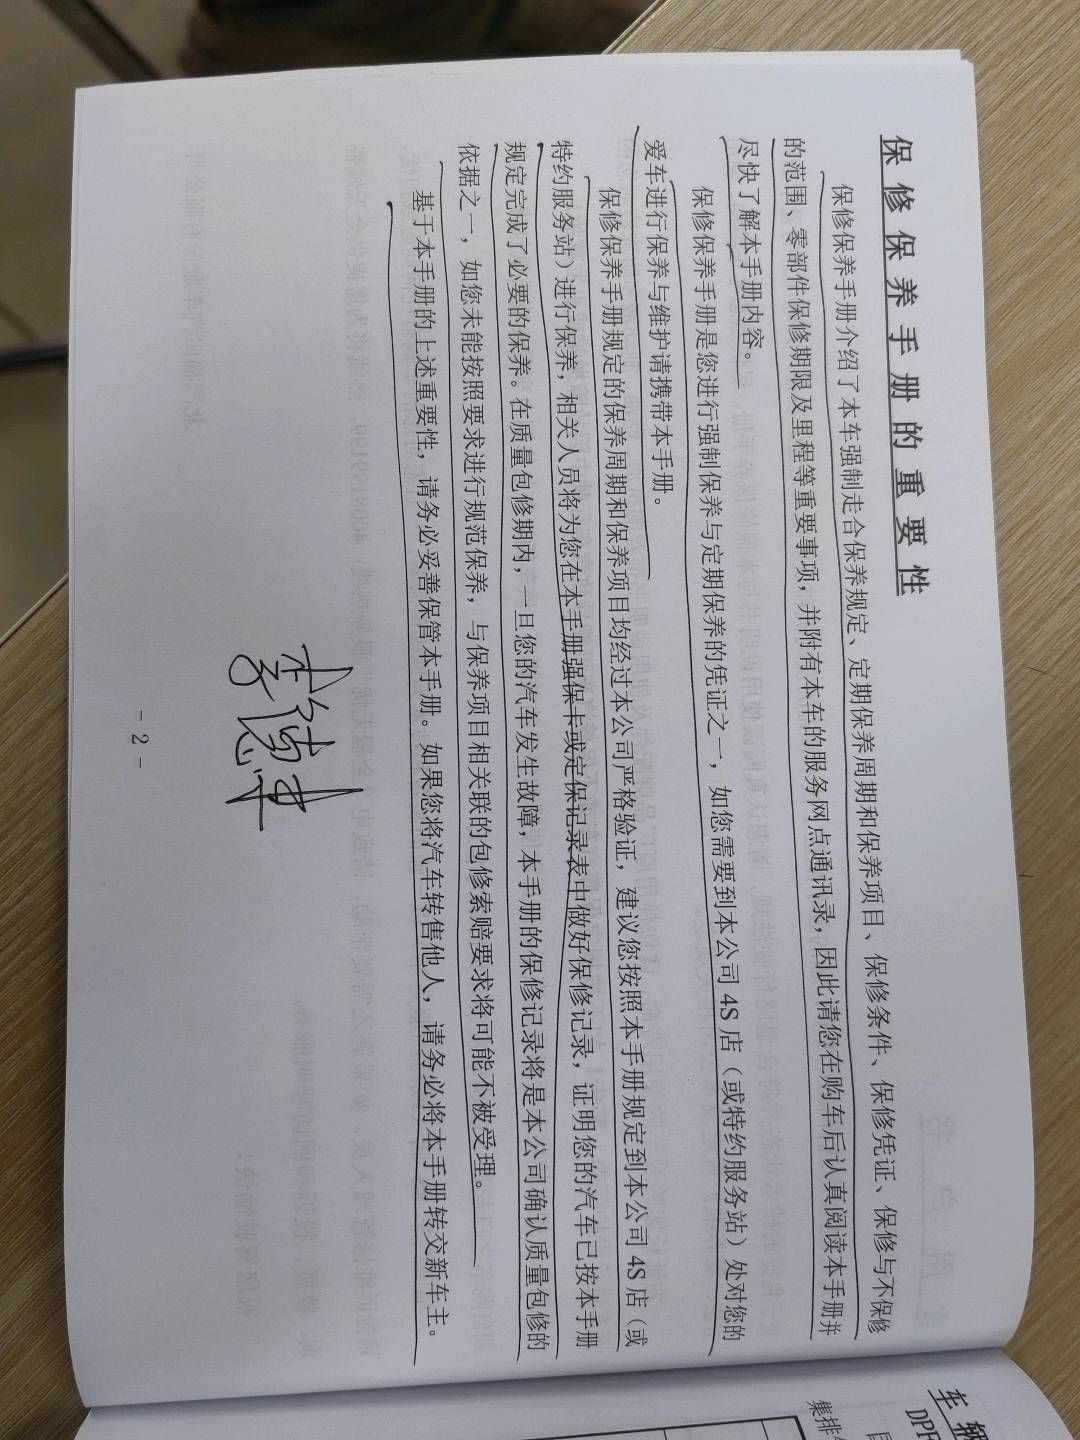 保修保养手册的重要性
保修保养手册介绍了本车强制走合保养规定、定期保养周期和保养项目、保修条件、保修凭证、保修与不保修
的范围、零部件保修期限及里程等重要事项，并附有本车的服务网点通讯录，因此请您在购车后认真阅读本手册并
尽快了解本手册内容。
保修保养手册是您进行强制保养与定期保养的凭证之一，如您需要到本公司4S店（或特约服务站）处对您的
爱车进行保养与维护请携带本手册。
保修保养手册规定的保养周期和保养项目均经过本公司严格验证，建议您按照本手册规定到本公司4S店（或
特约服务站）进行保养，相关人员将为您在本手册强保卡或定保记录表中做好保修记录，证明您的汽车已按本手册
规定完成了必要的保养。在质量包修期内，一旦您的汽车发生故障，本手册的保修记录将是本公司确认质量包修的
依据之一，如您未能按照要求进行规范保养，与保养项目相关联的包修索赔要求将可能不被受理。
基于本手册的上述重要性，请务必妥善保管本手册。如果您将汽车转售他人，请务必将本手册转交新车主。
- 2 -
车辆
DPF
集排